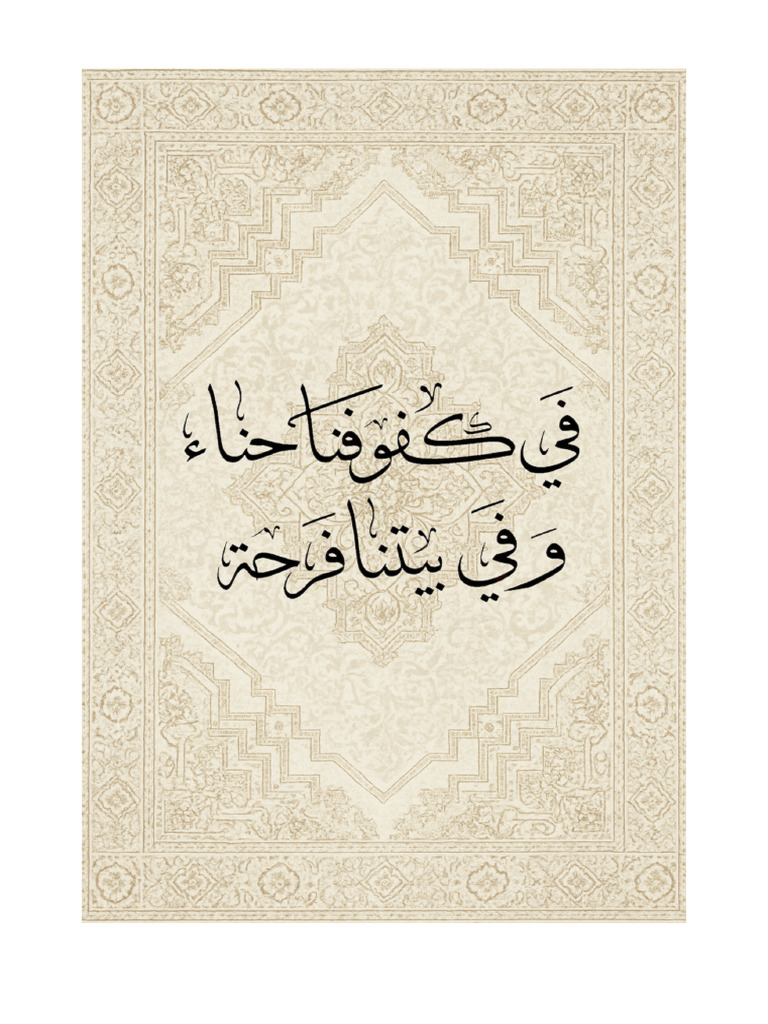 في كفوفنا حناء
وَ في بيتنا فَرحة